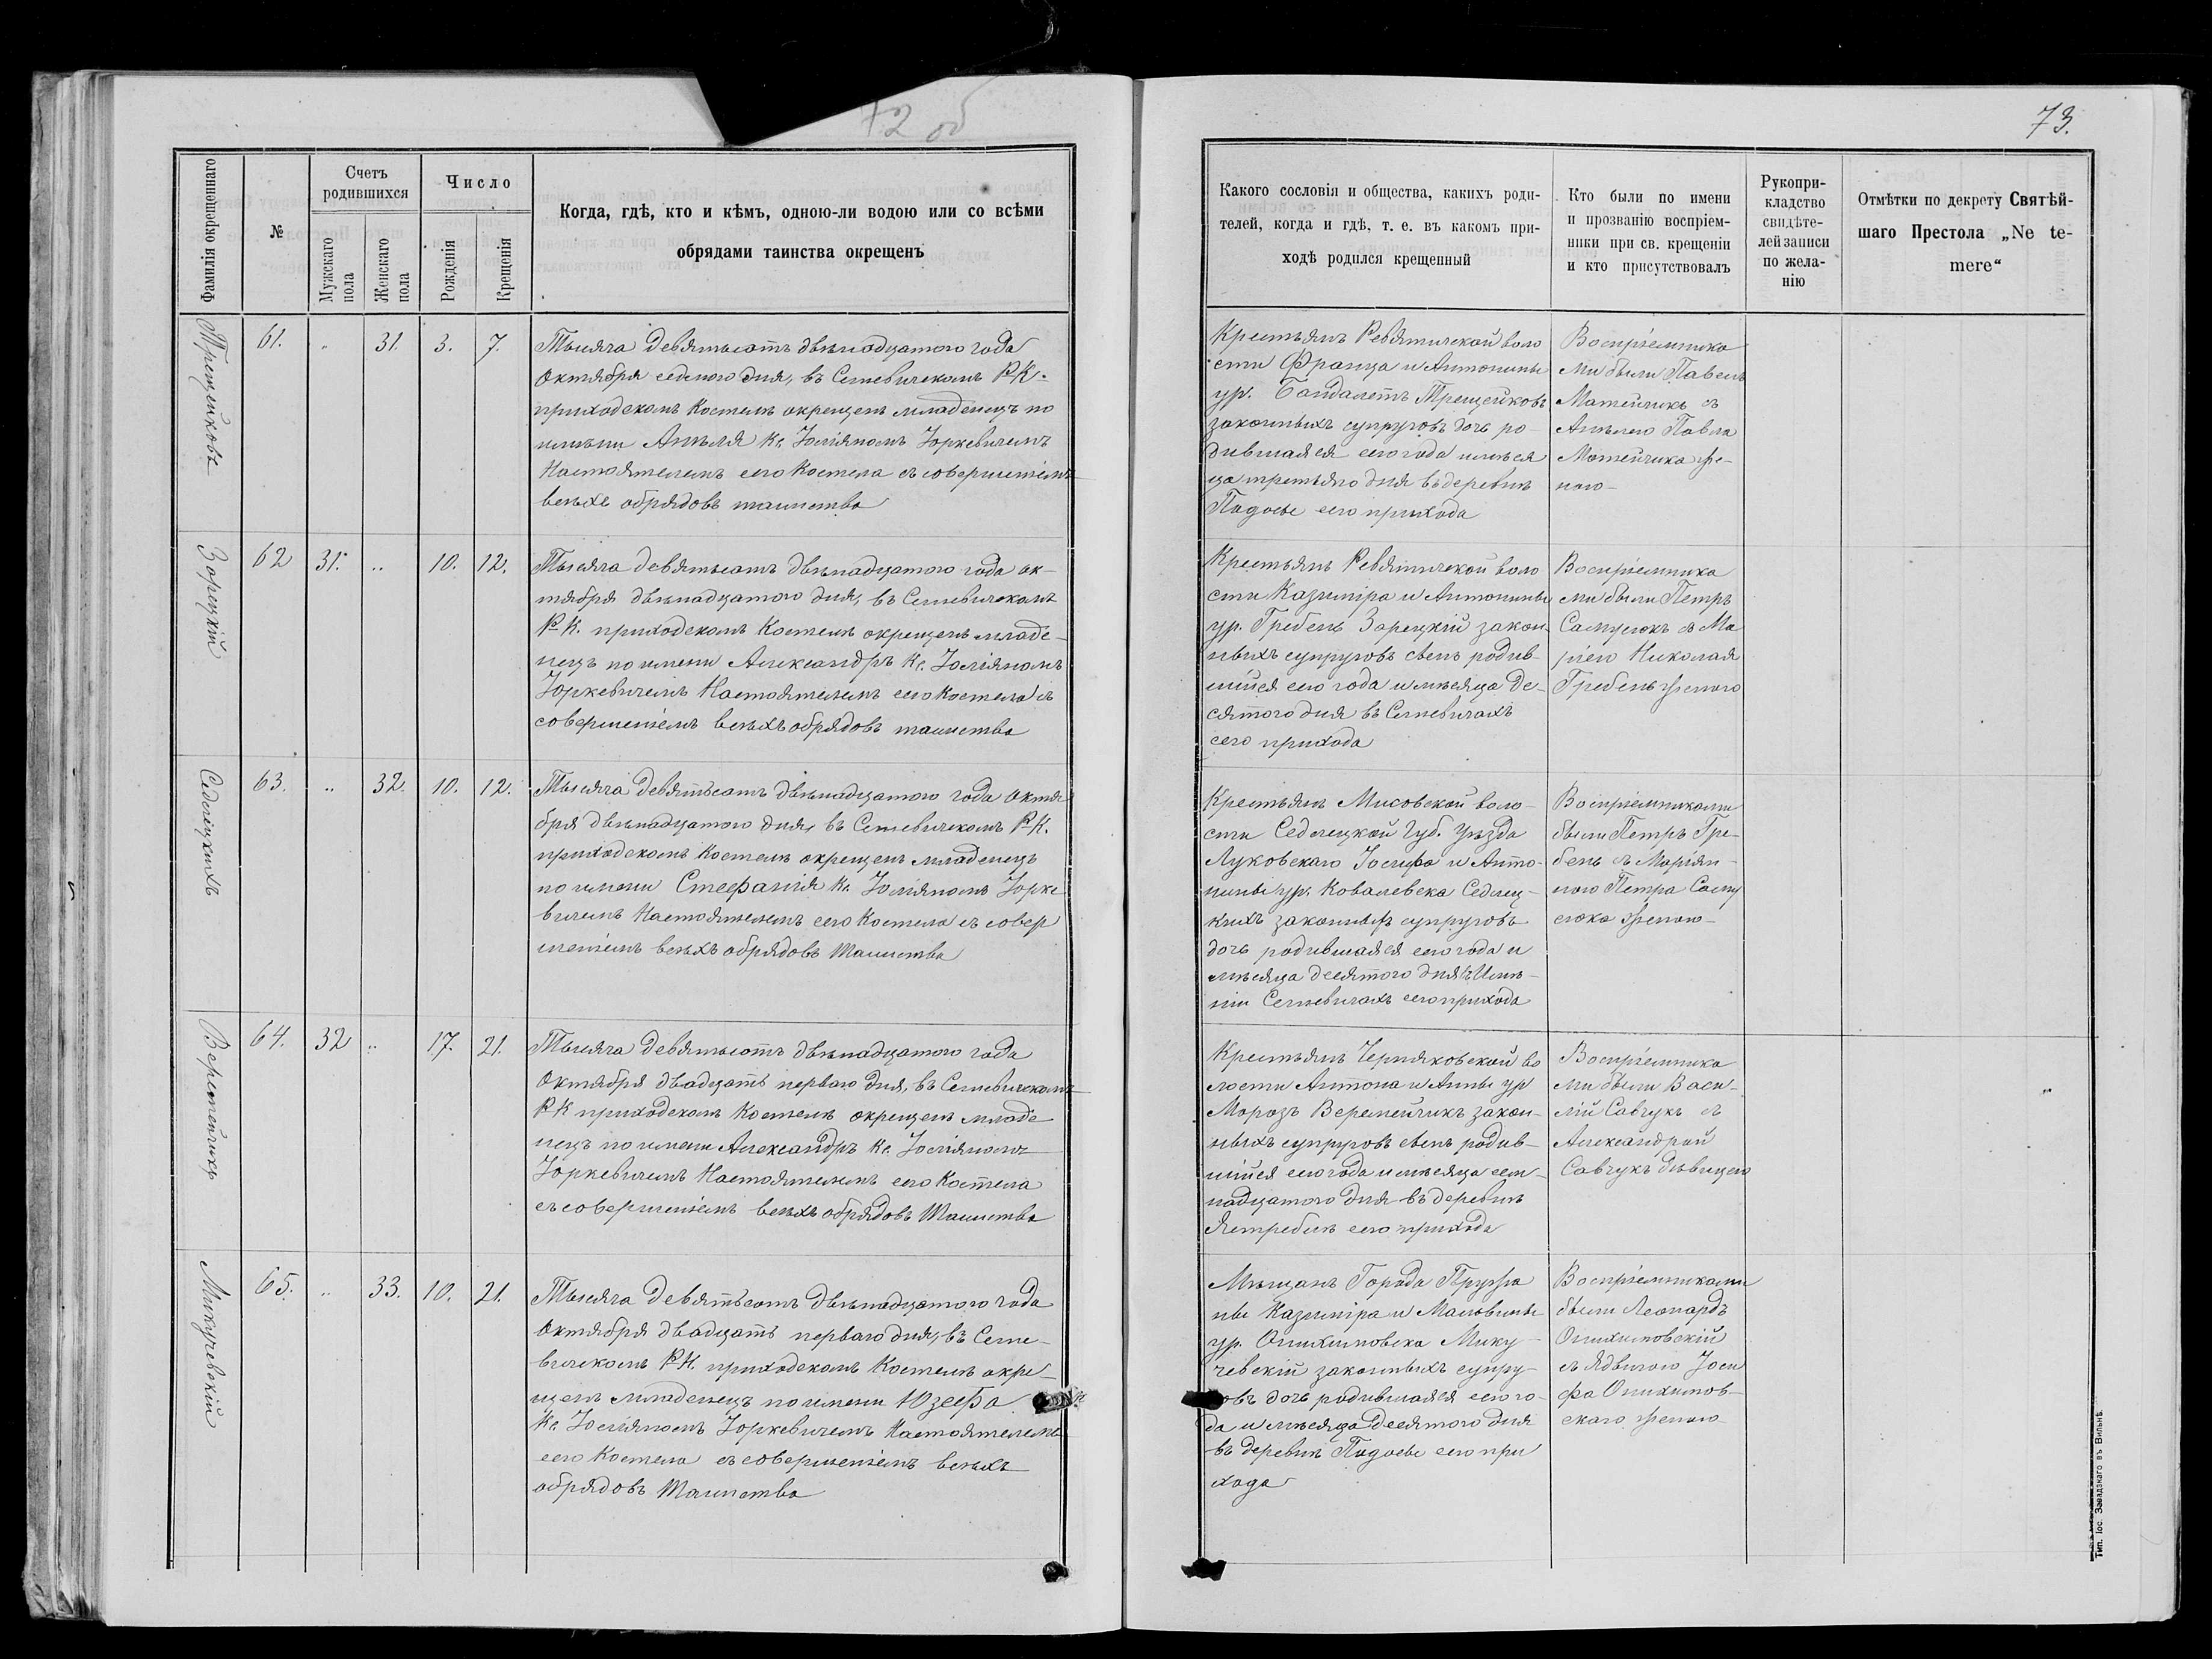 72 об
73.
Фамилія окрещеннаго
№
Счетъ родившихся
Мужскаго пола
Женскаго пола
Число
Рожденія
Крещенія
Когда, гдѣ, кто и кѣмъ, одною-ли водою или со всѣми
обрядами таинства окрещенъ
Какого сословія и общества, какихъ роди-
телей, когда и гдѣ, т. е. въ какомъ при-
ходѣ родился крещенный
Кто были по имени
и прозванію воспріем-
ники при св. крещеніи
и кто присутствовалъ
Рукопри-
кладство
свидѣте-
лей записи
по жела-
нію
Отмѣтки по декрету Святѣй-
шаго Престола „Ne te-
mere“
61. „ 31. 3. 7.
Тысяча девятьсотъ двѣнадцатого года
Октября седмого дня, въ Сегневичскомъ Р.К.
приходскомъ Костелѣ окрещенъ младенецъ по
имени Анѣля Кс. Юліяномъ Юркевичемъ
Настоятелемъ сего Костела съ совершеніемъ
всѣхъ обрядовъ таинства
Крестьянъ Ревятичской воло
сти Франца и Антонины
ур. Бандалетъ Трещейковъ
законныхъ супруговъ дочь ро-
дившаяся сего года и мѣся
ца третьяго дня въ деревнѣ
сего прихода
Воспріемника
ми были Павелъ
Матейчикъ съ
Анѣлею Павла
Матейчика же-
ною
Зарецкій
62 31. „ 10. 12.
Тысяча девятьсотъ двѣнадцатого года ок-
тября двѣнадцатого дня, въ Сегневичскомъ
Р.К. приходскомъ Костелѣ окрещенъ младе-
нецъ по имени Александръ Кс. Юліяномъ
Юркевичемъ Настоятелемъ сего Костела съ
совершеніемъ всѣхъ обрядовъ таинства
Крестьянъ Ревятичской воло
сти Казиміра и Антонины
ур. Гребень Зарецкій закон-
ныхъ супруговъ сынъ родив-
шійся сего года и мѣсяца де-
сятого дня въ Сегневичахъ
сего прихода
Воспріемника
ми были Петръ
Самусюкъ съ Ма
ріею Николая
Гребень женою
Седлецкихъ
63. „ 32. 10. 12.
Тысяча девятьсотъ двѣнадцатого года Октя
бря двѣнадцатого дня, въ Сегневичскомъ Р.К.
приходскомъ Костелѣ окрещенъ младенецъ
по имени Стефанія Кс. Юліяномъ Юрке
вичемъ Настоятелемъ сего Костела съ совер
шеніемъ всѣхъ обрядовъ Таинства
Крестьянъ Мисовской воло-
сти Седлецкой Губ. Уѣзда
Луковскаго Іосифа и Анто-
нины ур. Ковалевска Седлец-
кихъ законныхъ супруговъ
дочь родившаяся сего года и
мѣсяца десятого дня въ Имѣ-
ніи Сегневичахъ сего прихода
Воспріемниками
были Петръ Гре-
бень съ Маріян-
ною Петра Саму
сюка женою
Веремейчикъ
64. 32 „ 17. 21.
Тысяча девятьсотъ двѣнадцатого года
Октября двадцать перваго дня, въ Сегневичскомъ
Р.К. приходскомъ Костелѣ окрещенъ младе
нецъ по имени Александръ Кс. Юліяномъ
Юркевичемъ Настоятелемъ сего Костела
съ совершеніемъ всѣхъ обрядовъ Таинства
Крестьянъ Черняковской во
лости Антона и Анны ур
Морозъ Веремейчикъ закон-
ныхъ супруговъ сынъ родив-
шійся сего года и мѣсяца сем-
надцатого дня въ деревнѣ
Ястребиль сего прихода
Воспріемника
ми были Васи-
лій Савчукъ съ
Александрой
Савчукъ дѣвицею
Микучевскій
65. „ 33. 10. 21.
Тысяча девятьсотъ двѣнадцатого года
Октября двадцать перваго дня, въ Сегне-
вичскомъ Р.К. приходскомъ Костелѣ окре-
щенъ младенецъ по имени Юзефа
Кс. Юліяномъ Юркевичемъ Настоятелемъ
сего Костела съ совершеніемъ всѣхъ
обрядовъ Таинства
Мѣщанъ Города Пружа
ны Казиміра и Мальвины
ур. Микy-
чевскій законныхъ супру-
овъ дочь родившаяся сего го-
да и мѣсяца десятого дня
въ деревнѣ сего при
хода
Воспріемниками
были Леонардъ
съ Ядвигою Іоси
фа
скаго женою
Тип. Іос. Завадзкаго въ Вильнѣ.